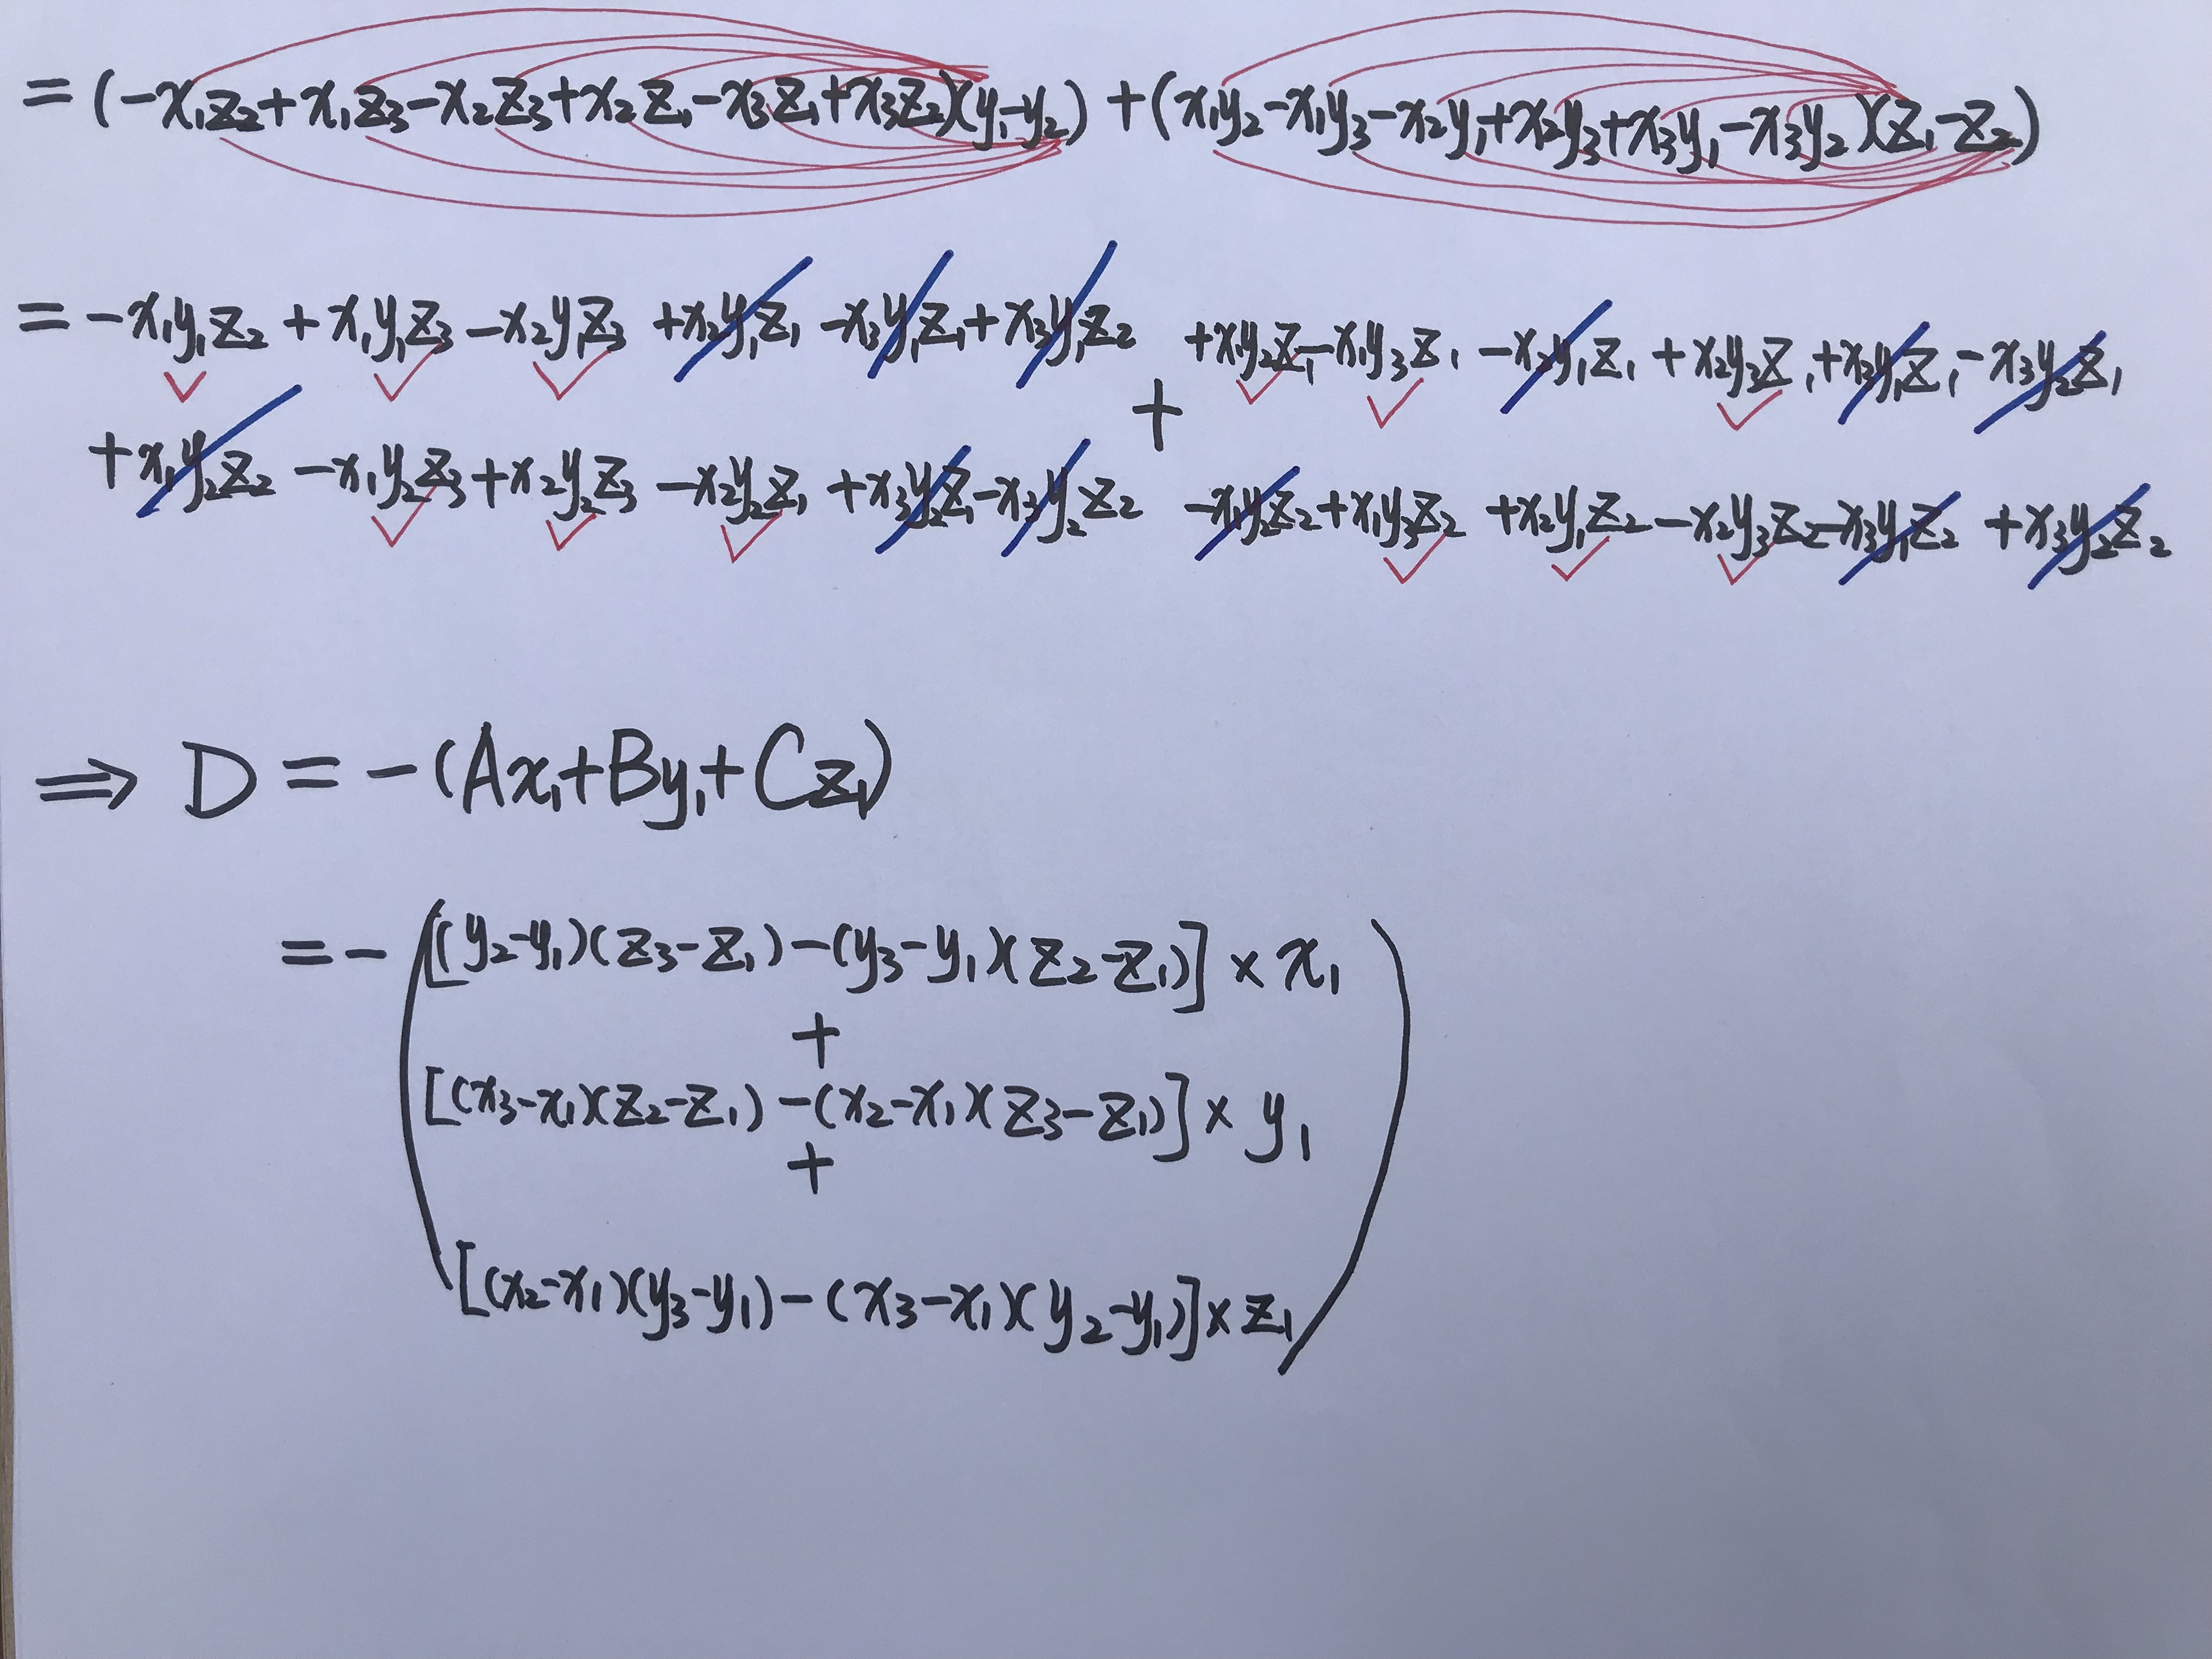 = (-x₁z₂+x₁z₃-x₂z₃+x₂z₁-x₃z₁+x₃z₂)(y₁-y₂) + (x₁y₂-x₁y₃-x₂y₁+x₂y₃+x₃y₁-x₃y₂)(z₁-z₂)
= -x₁y₁z₂ + x₁y₁z₃ -x₂y₁z₃ +x₂y₁z₁ -x₃y₁z₁ +x₃y₁z₂ +x₁y₂z₁ -x₁y₃z₁ -x₂y₁z₁ +x₂y₃z₁ +x₃y₁z₁ -x₃y₂z₁
+
+x₁y₂z₂ -x₁y₂z₃ +x₂y₂z₃ -x₂y₂z₁ +x₃y₂z₁ -x₃y₂z₂ -x₁y₂z₂ +x₁y₃z₂ +x₂y₁z₂ -x₂y₃z₂ -x₃y₁z₂ +x₃y₂z₂
⇒ D = -(Ax₁+By₁+Cz₁)
= - ([(y₂-y₁)(z₃-z₁)-(y₃-y₁)(z₂-z₁)] × x₁
+
[(x₃-x₁)(z₂-z₁)-(x₂-x₁)(z₃-z₁)] × y₁
+
[(x₂-x₁)(y₃-y₁)-(x₃-x₁)(y₂-y₁)] × z₁)